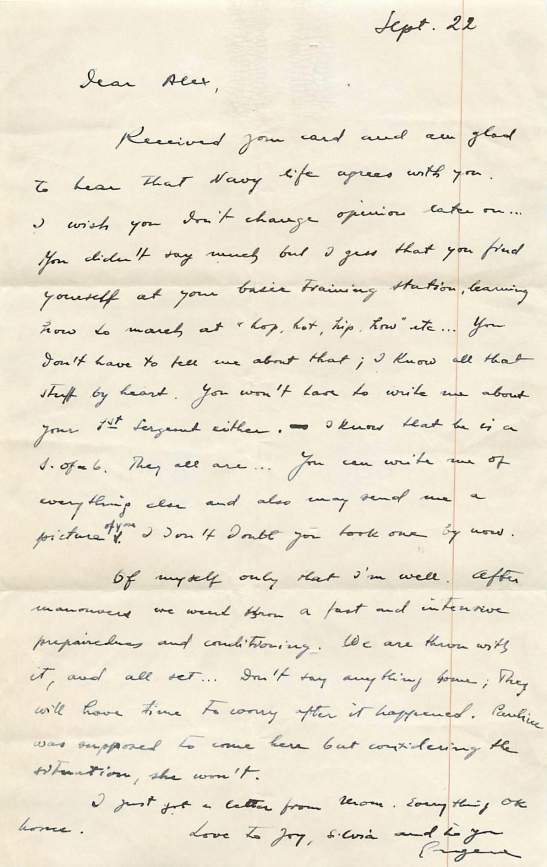 Sept. 22
Dear Alex,
Received your card and am glad
to hear that Navy life agrees with you.
I wish you don't change opinion later on...
You didn't say much but I gess that you find
yourself at your basic training station, learning
how to march at "hop, hot, hip, how" etc... You
don't have to tell me about that; I know all that
stuff by heart. You won't have to write me about
your 1st Sergeant either. I know that he is a
S. of a b. They all are... You can write me of
everything else and also may send me a
picture of you. I don't doubt you took one by now.
Of myself only that I'm well. After
manouvers we went thron a fast and intensive
preparedness and conditioning. We are thron with
it, and all set... Don't say anything home; They
will have time to worry after it happened. Pauline
was supposed to come here but considering the
situation, she won't.
I just got a letter from Mom. Everything OK
home. Love to Joy, Silvia and to you
Eugene